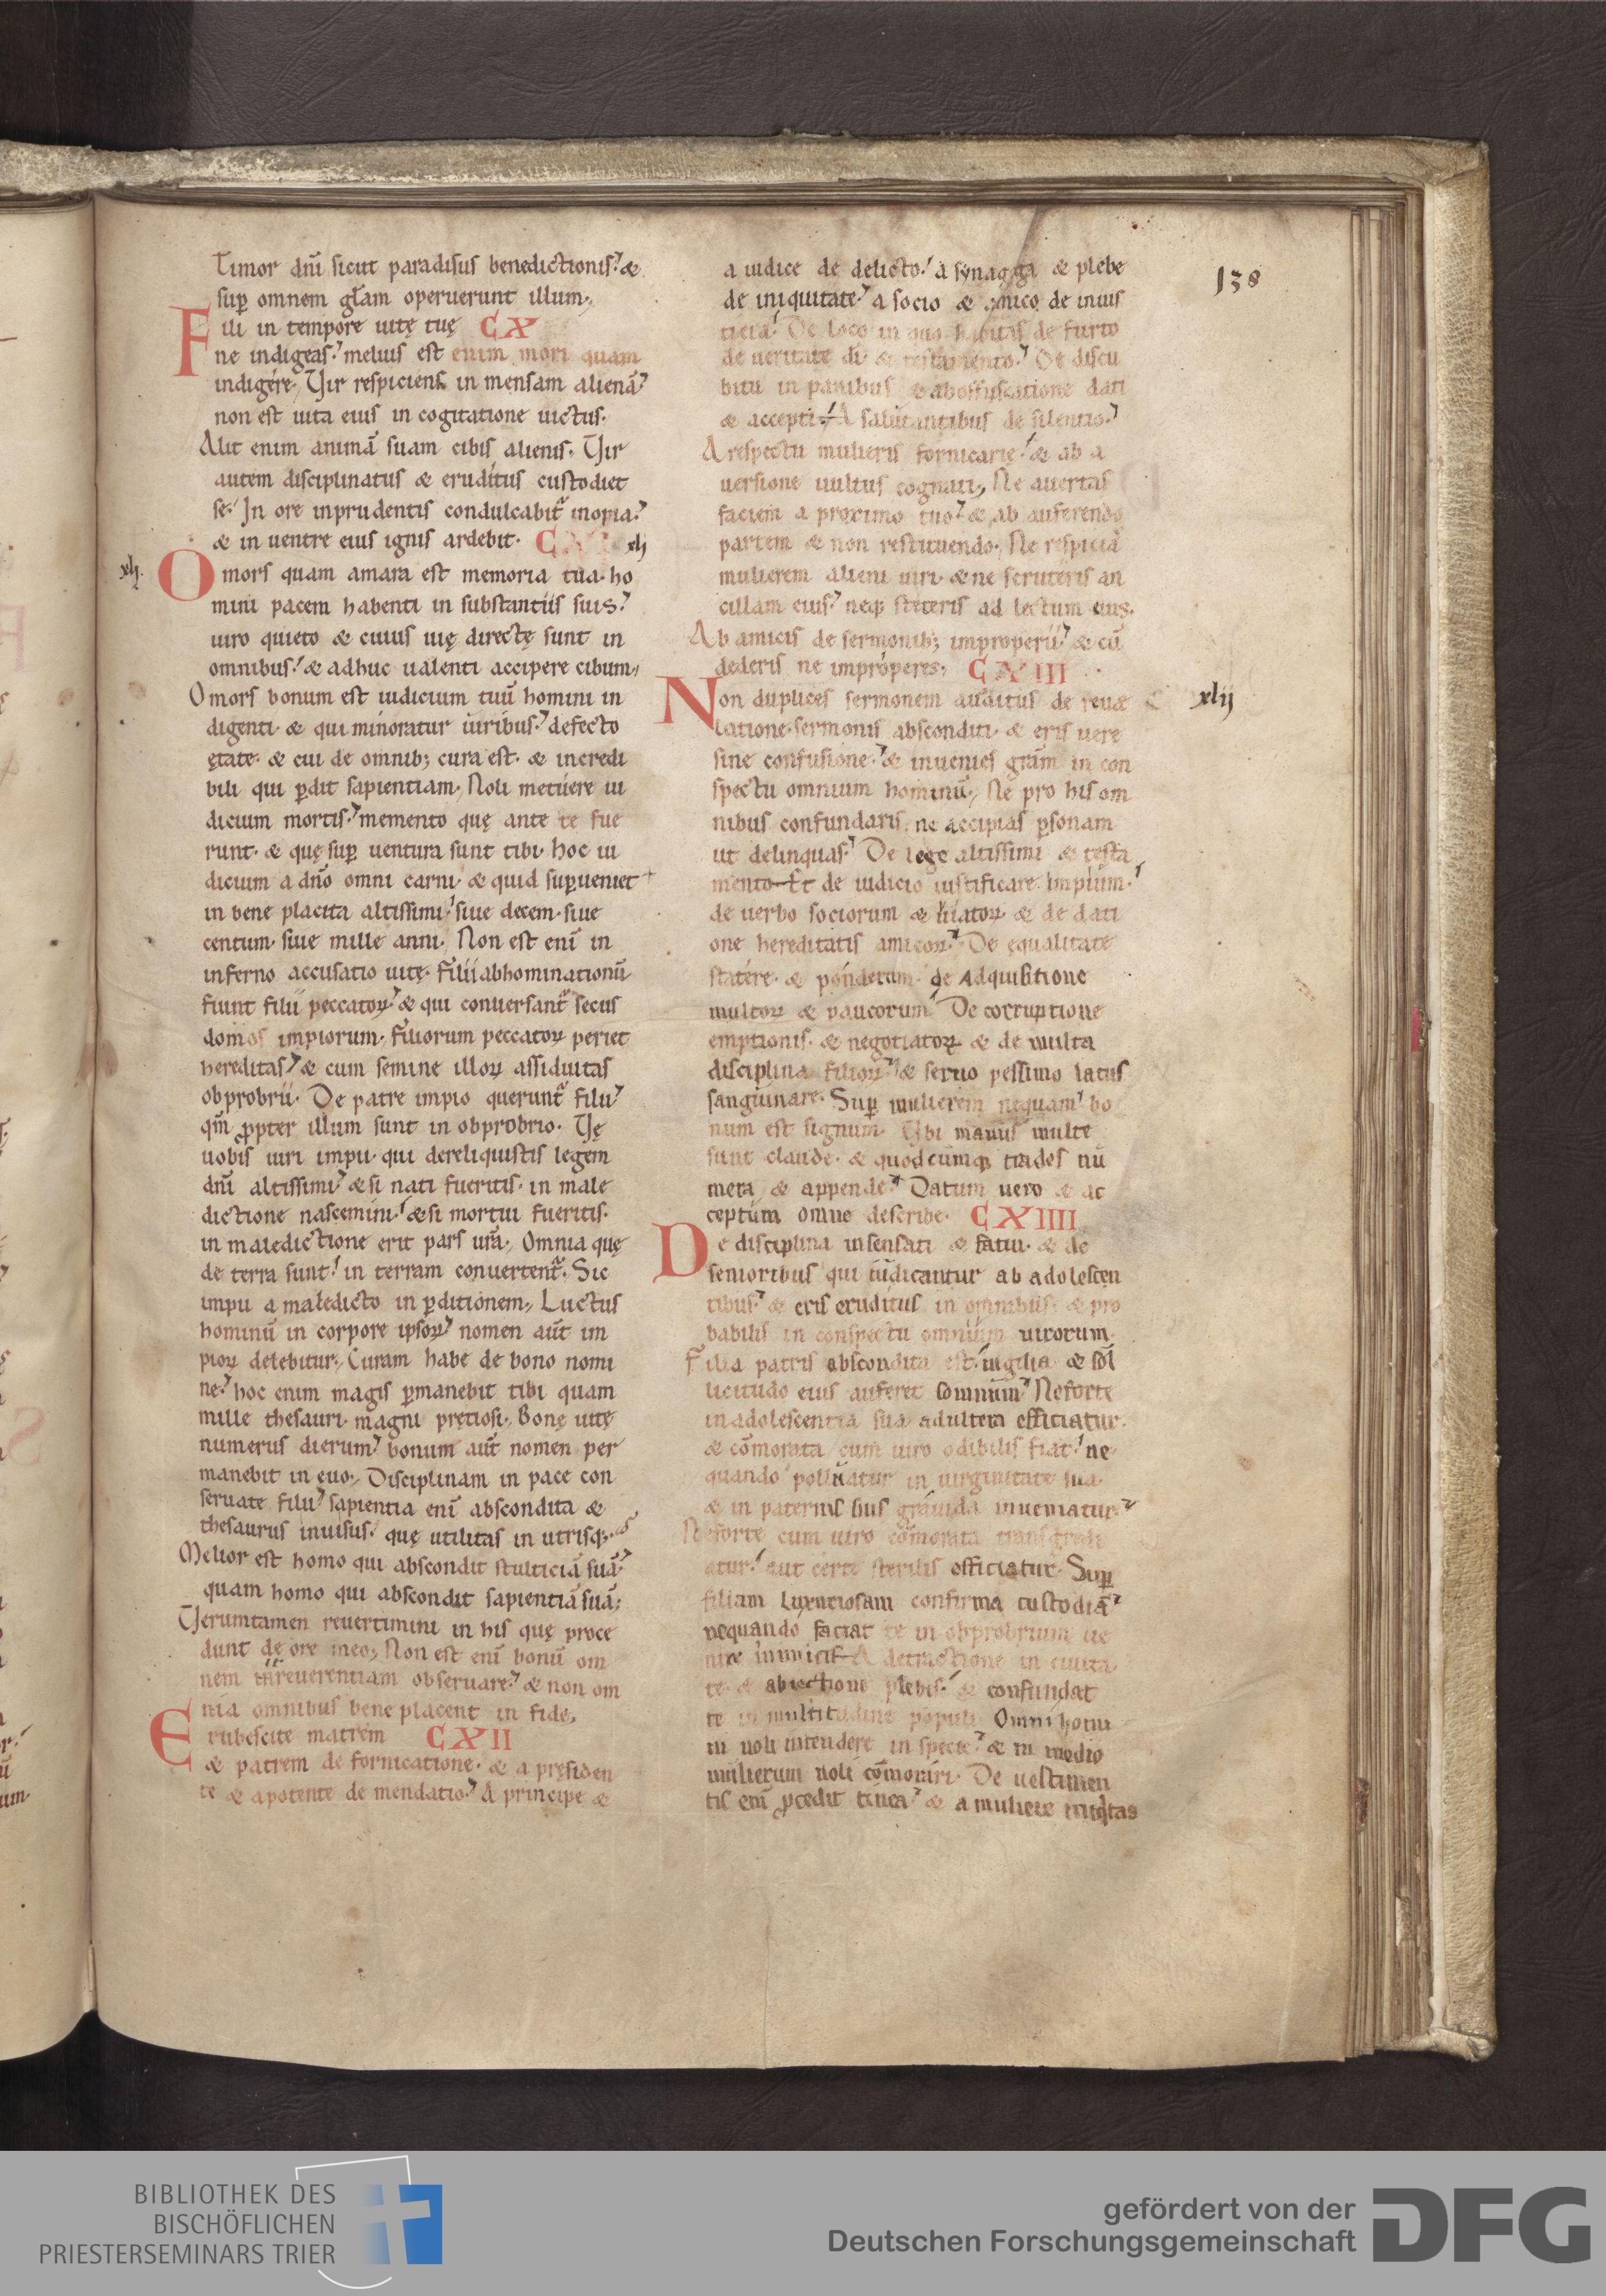 Timor dn̄i sicut paradisus benedictionis. &
sup̱ omnem gl̄am operuerunt illum.
Fili in tempore uitę tuę CX
ne indigeas. melius est enim mori quam
indigere. Vir respiciens in mensam alienā
non est uita eius in cogitatione uictus.
Alit enim animā suam cibis alienis. Vir
autem disciplinatus & eruditus custodiet
se. In ore inprudentis condulcabit᷑ inopia.
& in uentre eius ignis ardebit. xlj
xlj.
O mors quam amara est memoria tua. ho
mini pacem habenti in substantiis suis.
uiro quieto & cuius uię directę sunt in
omnibus. & adhuc ualenti accipere cibum.
O mors bonum est iudicium tuū homini in
digenti. & qui minoratur uiribus. defecto
ętate. & cui de omnib; cura est. & incredi
bili qui p̱dit sapientiam. Noli metuere iu
dicium mortis. memento quę ante te fue
runt. & quę sup̱ uentura sunt tibi. hoc iu
dicium a dn̄o omni carni. & quid sup̱ueniet
in bene placita altissimi. siue decem. siue
centum. siue mille anni. Non est enī in
inferno accusatio uitę. filii abhominationū
fiunt filii peccatoꝝ. & qui conuersant᷑ secus
domos impiorum. filiorum peccatoꝝ periet
hereditas. & cum semine illoꝝ assiduitas
obprobrii. De patre impio querunt᷑ filii.
qm̄ ꝓpter illum sunt in obprobrio. Vę
uobis uiri impii. qui dereliquistis legem
dn̄i altissimi. & si nati fueritis. in male
dictione nascemini. & si mortui fueritis.
in maledictione erit pars ur̄a. Omnia quę
de terra sunt. in terram conuertent᷑. Sic
impii a maledicto in p̱ditionem. Luctus
hominū in corpore ipsoꝝ. nomen aūt im
pioꝝ delebitur. Curam habe de bono nomi
ne. hoc enim magis p̱manebit tibi quam
mille thesauri magni pretiosi. Bonę uitę
numerus dierum. bonum aūt nomen per
manebit in euo. Disciplinam in pace con
seruate filii. sapientia enī abscondita &
thesaurus inuisus. quę utilitas in utrisq;.
Melior est homo qui abscondit stulticiā suā.
quam homo qui abscondit sapientiā suā.
Verumtamen reuertimini in his quę proce
dunt de ore meo. Non est enī bonū om
nem irreuerentiam obseruare. & non om
nia omnibus bene placent in fide.
Erubescite matrem CXII
& patrem de fornicatione. & a presiden
te & a potente de mendatio. A principe &
138
a iudice de delicto. a synagoga & plebe
de iniquitate. a socio & amico de inius
ticia. De loco in quo habitas de furto
de ueritate dī & testamento. De discu
bitu in panibus & ab offuscatione dati
& accepti. A salutantibus de silentio.
A respectu mulieris fornicarię. & ab a
uersione uultus cognati. Ne auertas
faciem a proximo tuo. & ab auferendo
partem & non restituendo. Ne respiciā
mulierem alieni uiri. & ne scruteris an
cillam eius. neq; steteris ad lectum eius.
Ab amicis de sermonib; improperii. & cū
dederis ne improperes. CXIII
Non duplices sermonem auditus de reue
xlij
latione sermonis absconditi. & eris uere
sine confusione. & inuenies grām in con
spectu omnium hominū. Ne pro his om
nibus confundaris. ne accipias p̱sonam
ut delinquas. De lege altissimi & testa
mento Et de iudicio iustificare impium.
de uerbo sociorum & uiatoꝝ & de dati
one hereditatis amicoꝝ. De equalitate
statere. & ponderum. de Adquisitione
multoꝝ & paucorum. De corruptione
emptionis. & negotiatoꝝ & de multa
disciplina filioꝝ. & seruo pessimo latus
sanguinare. Sup̱ mulierem nequam. bo
num est signum. Vbi manus multe
sunt claude. & quodcumq; trades nū
mera, & appende. Datum uero & ac
ceptum omne describe. CXIIII
De disciplina insensati & fatui. & de
senioribus qui iudicantur ab adolescen
tibus. & eris eruditus in omnibus. & pro
babilis in conspectu omnium uirorum.
Filia patris abscondita est. uigilia & sol
licitudo eius auferet somnum. Ne forte
in adolescentia sua adultera efficiatur.
& cōmorata cum uiro odibilis fiat. ne
quando polluatur in uirginitate sua.
& in paternis suis grauida inueniatur.
Ne forte cum uiro cōmorata transgredi
atur. aut certe sterilis efficiatur. Sup̱
filiam luxuriosam confirma custodiā.
nequando faciat te in obprobrium ue
nire inimicis. A detractione in ciuita
te. & abiectione plebis. & confundat
te in multitudine populi. Omni homi
ni noli intendere in specie. & in medio
mulierum noli cōmorari. De uestimen
tis enī ꝓcedit tinea. & a muliere iniq̇tas
BIBLIOTHEK DES
BISCHÖFLICHEN
PRIESTERSEMINARS TRIER
gefördert von der
Deutschen Forschungsgemeinschaft
DFG